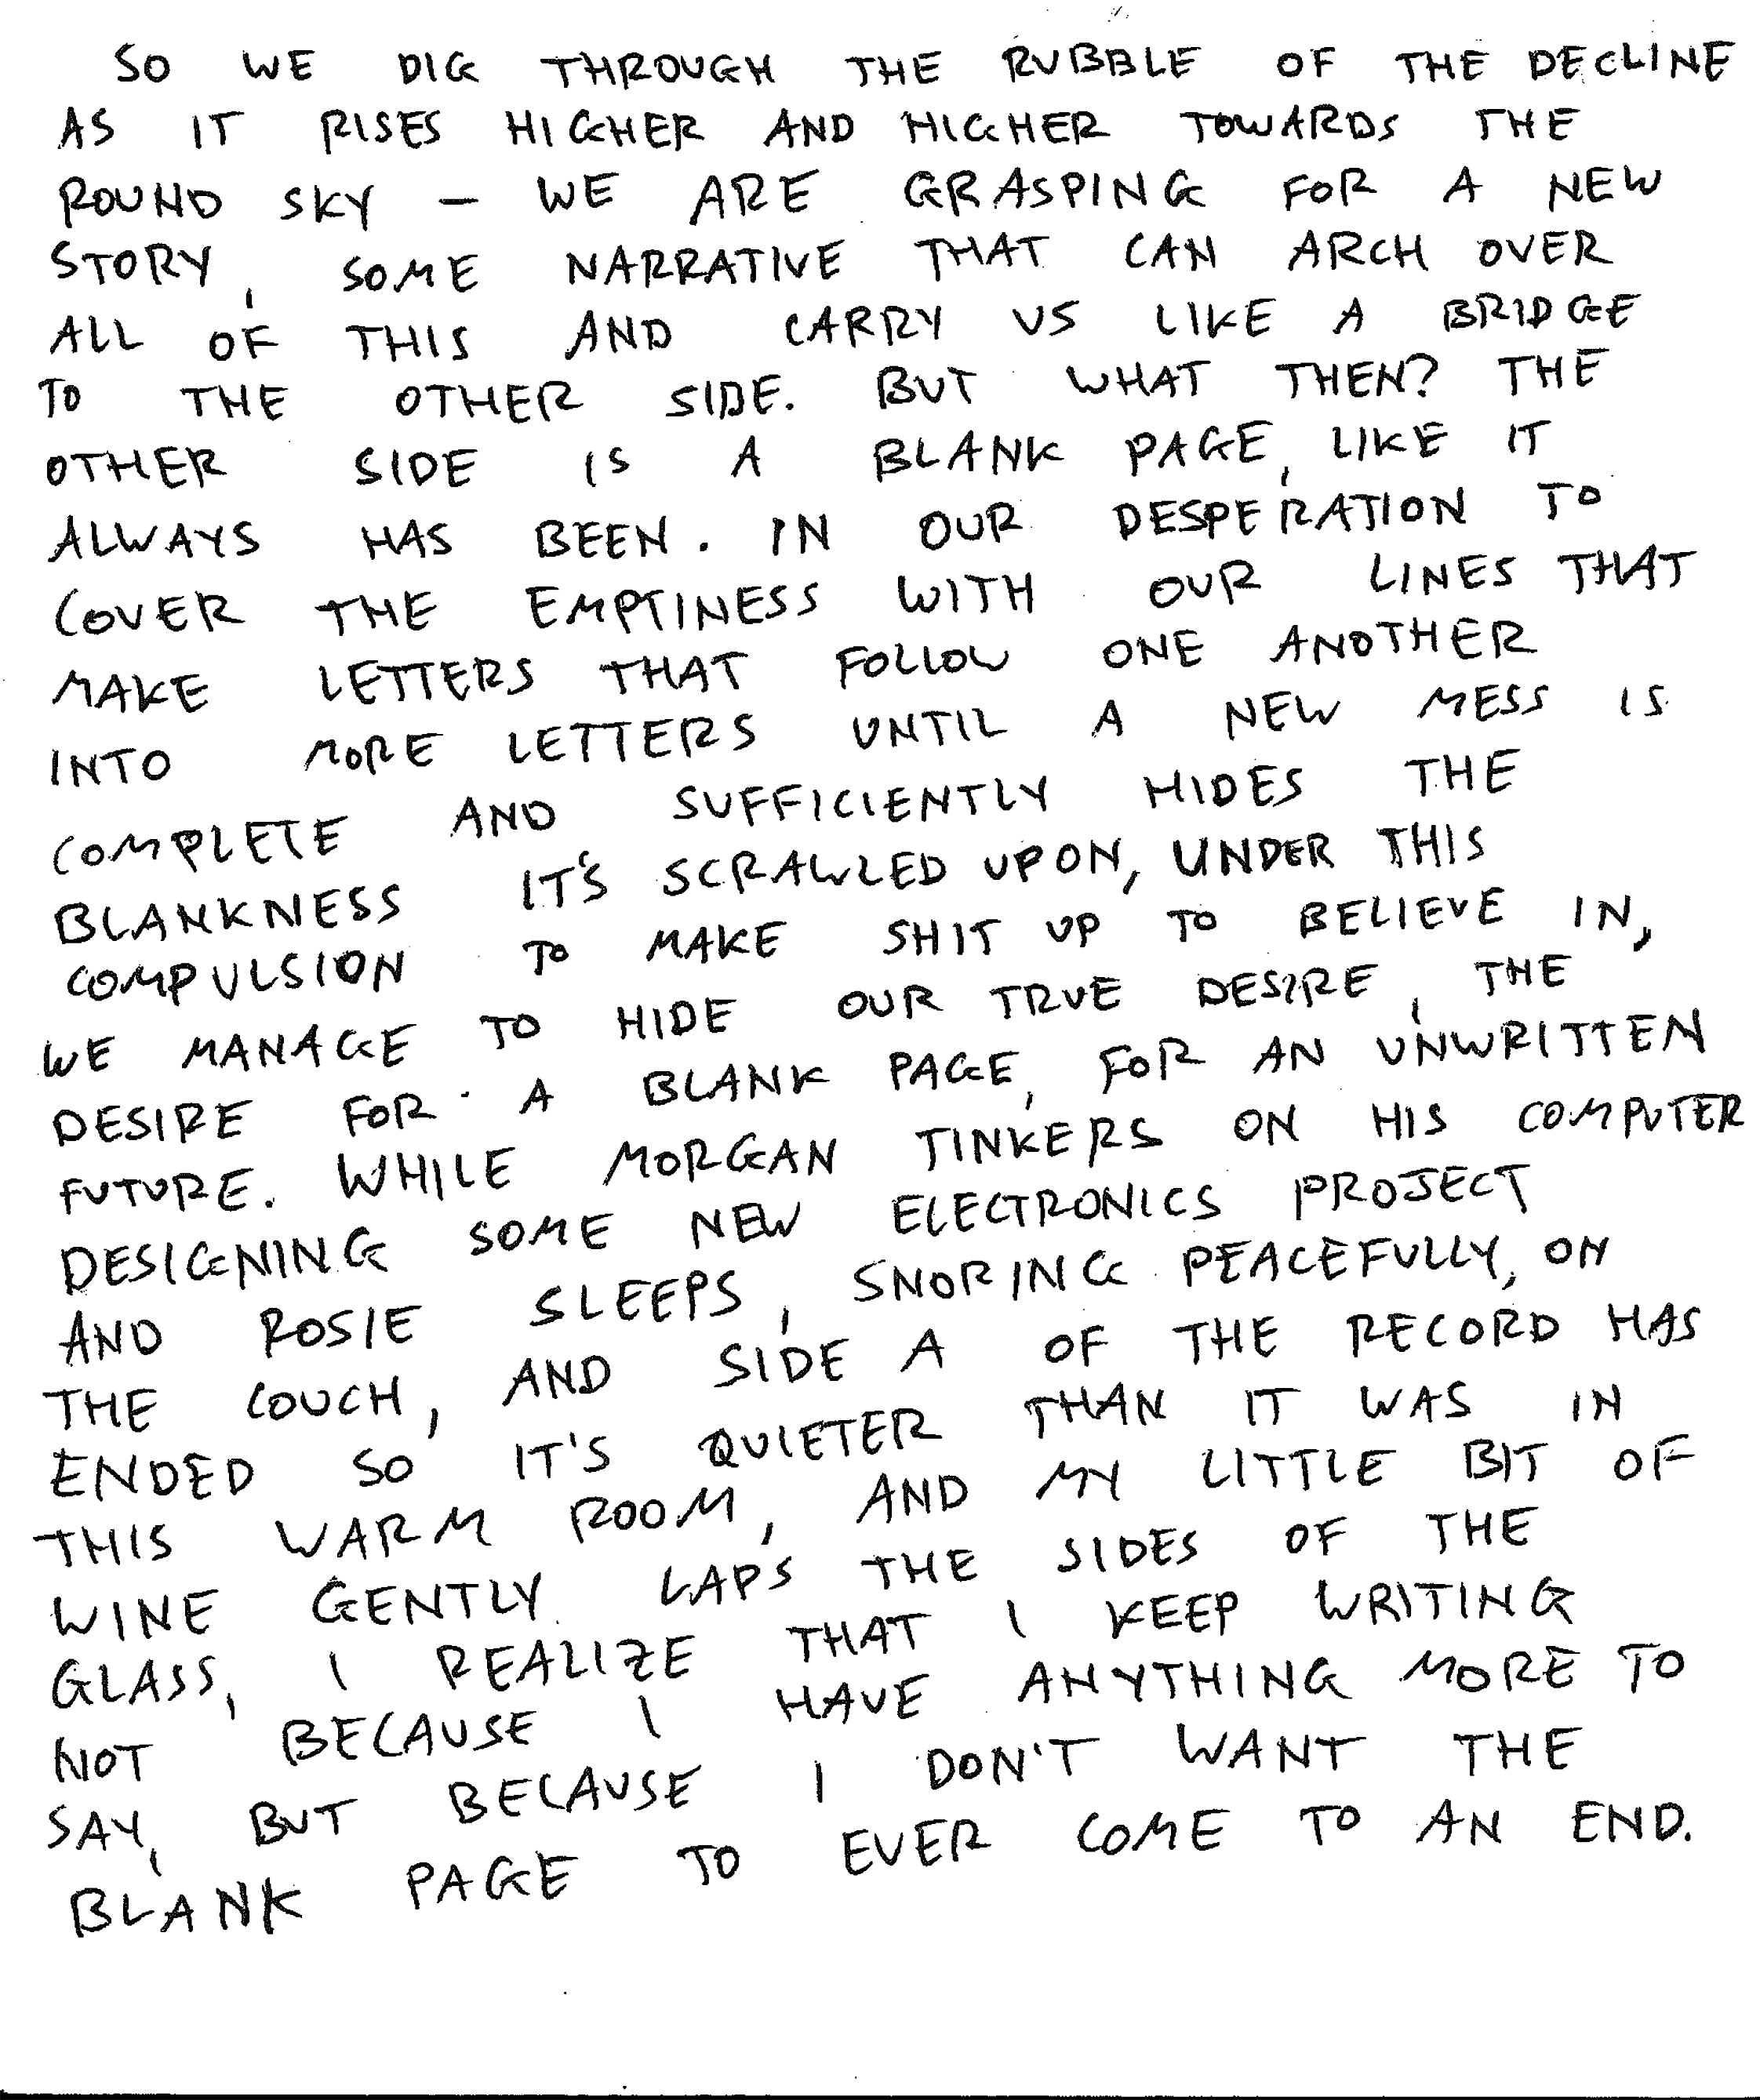 SO WE DIG THROUGH THE RUBBLE OF THE DECLINE
AS IT RISES HIGHER AND HIGHER TOWARDS THE
ROUND SKY — WE ARE GRASPING FOR A NEW
STORY, SOME NARRATIVE THAT CAN ARCH OVER
ALL OF THIS AND CARRY US LIKE A BRIDGE
TO THE OTHER SIDE. BUT WHAT THEN? THE
OTHER SIDE IS A BLANK PAGE, LIKE IT
ALWAYS HAS BEEN. IN OUR DESPERATION TO
COVER THE EMPTINESS WITH OUR LINES THAT
MAKE LETTERS THAT FOLLOW ONE ANOTHER
INTO MORE LETTERS UNTIL A NEW MESS IS
COMPLETE AND SUFFICIENTLY HIDES THE
BLANKNESS IT'S SCRAWLED UPON, UNDER THIS
COMPULSION TO MAKE SHIT UP TO BELIEVE IN,
WE MANAGE TO HIDE OUR TRUE DESIRE, THE
DESIRE FOR A BLANK PAGE, FOR AN UNWRITTEN
FUTURE. WHILE MORGAN TINKERS ON HIS COMPUTER
DESIGNING SOME NEW ELECTRONICS PROJECT
AND ROSIE SLEEPS, SNORING PEACEFULLY, ON
THE COUCH, AND SIDE A OF THE RECORD HAS
ENDED SO IT'S QUIETER THAN IT WAS IN
THIS WARM ROOM, AND MY LITTLE BIT OF
WINE GENTLY LAPS THE SIDES OF THE
GLASS, I REALIZE THAT I KEEP WRITING
NOT BECAUSE I HAVE ANYTHING MORE TO
SAY, BUT BECAUSE I DON'T WANT THE
BLANK PAGE TO EVER COME TO AN END.